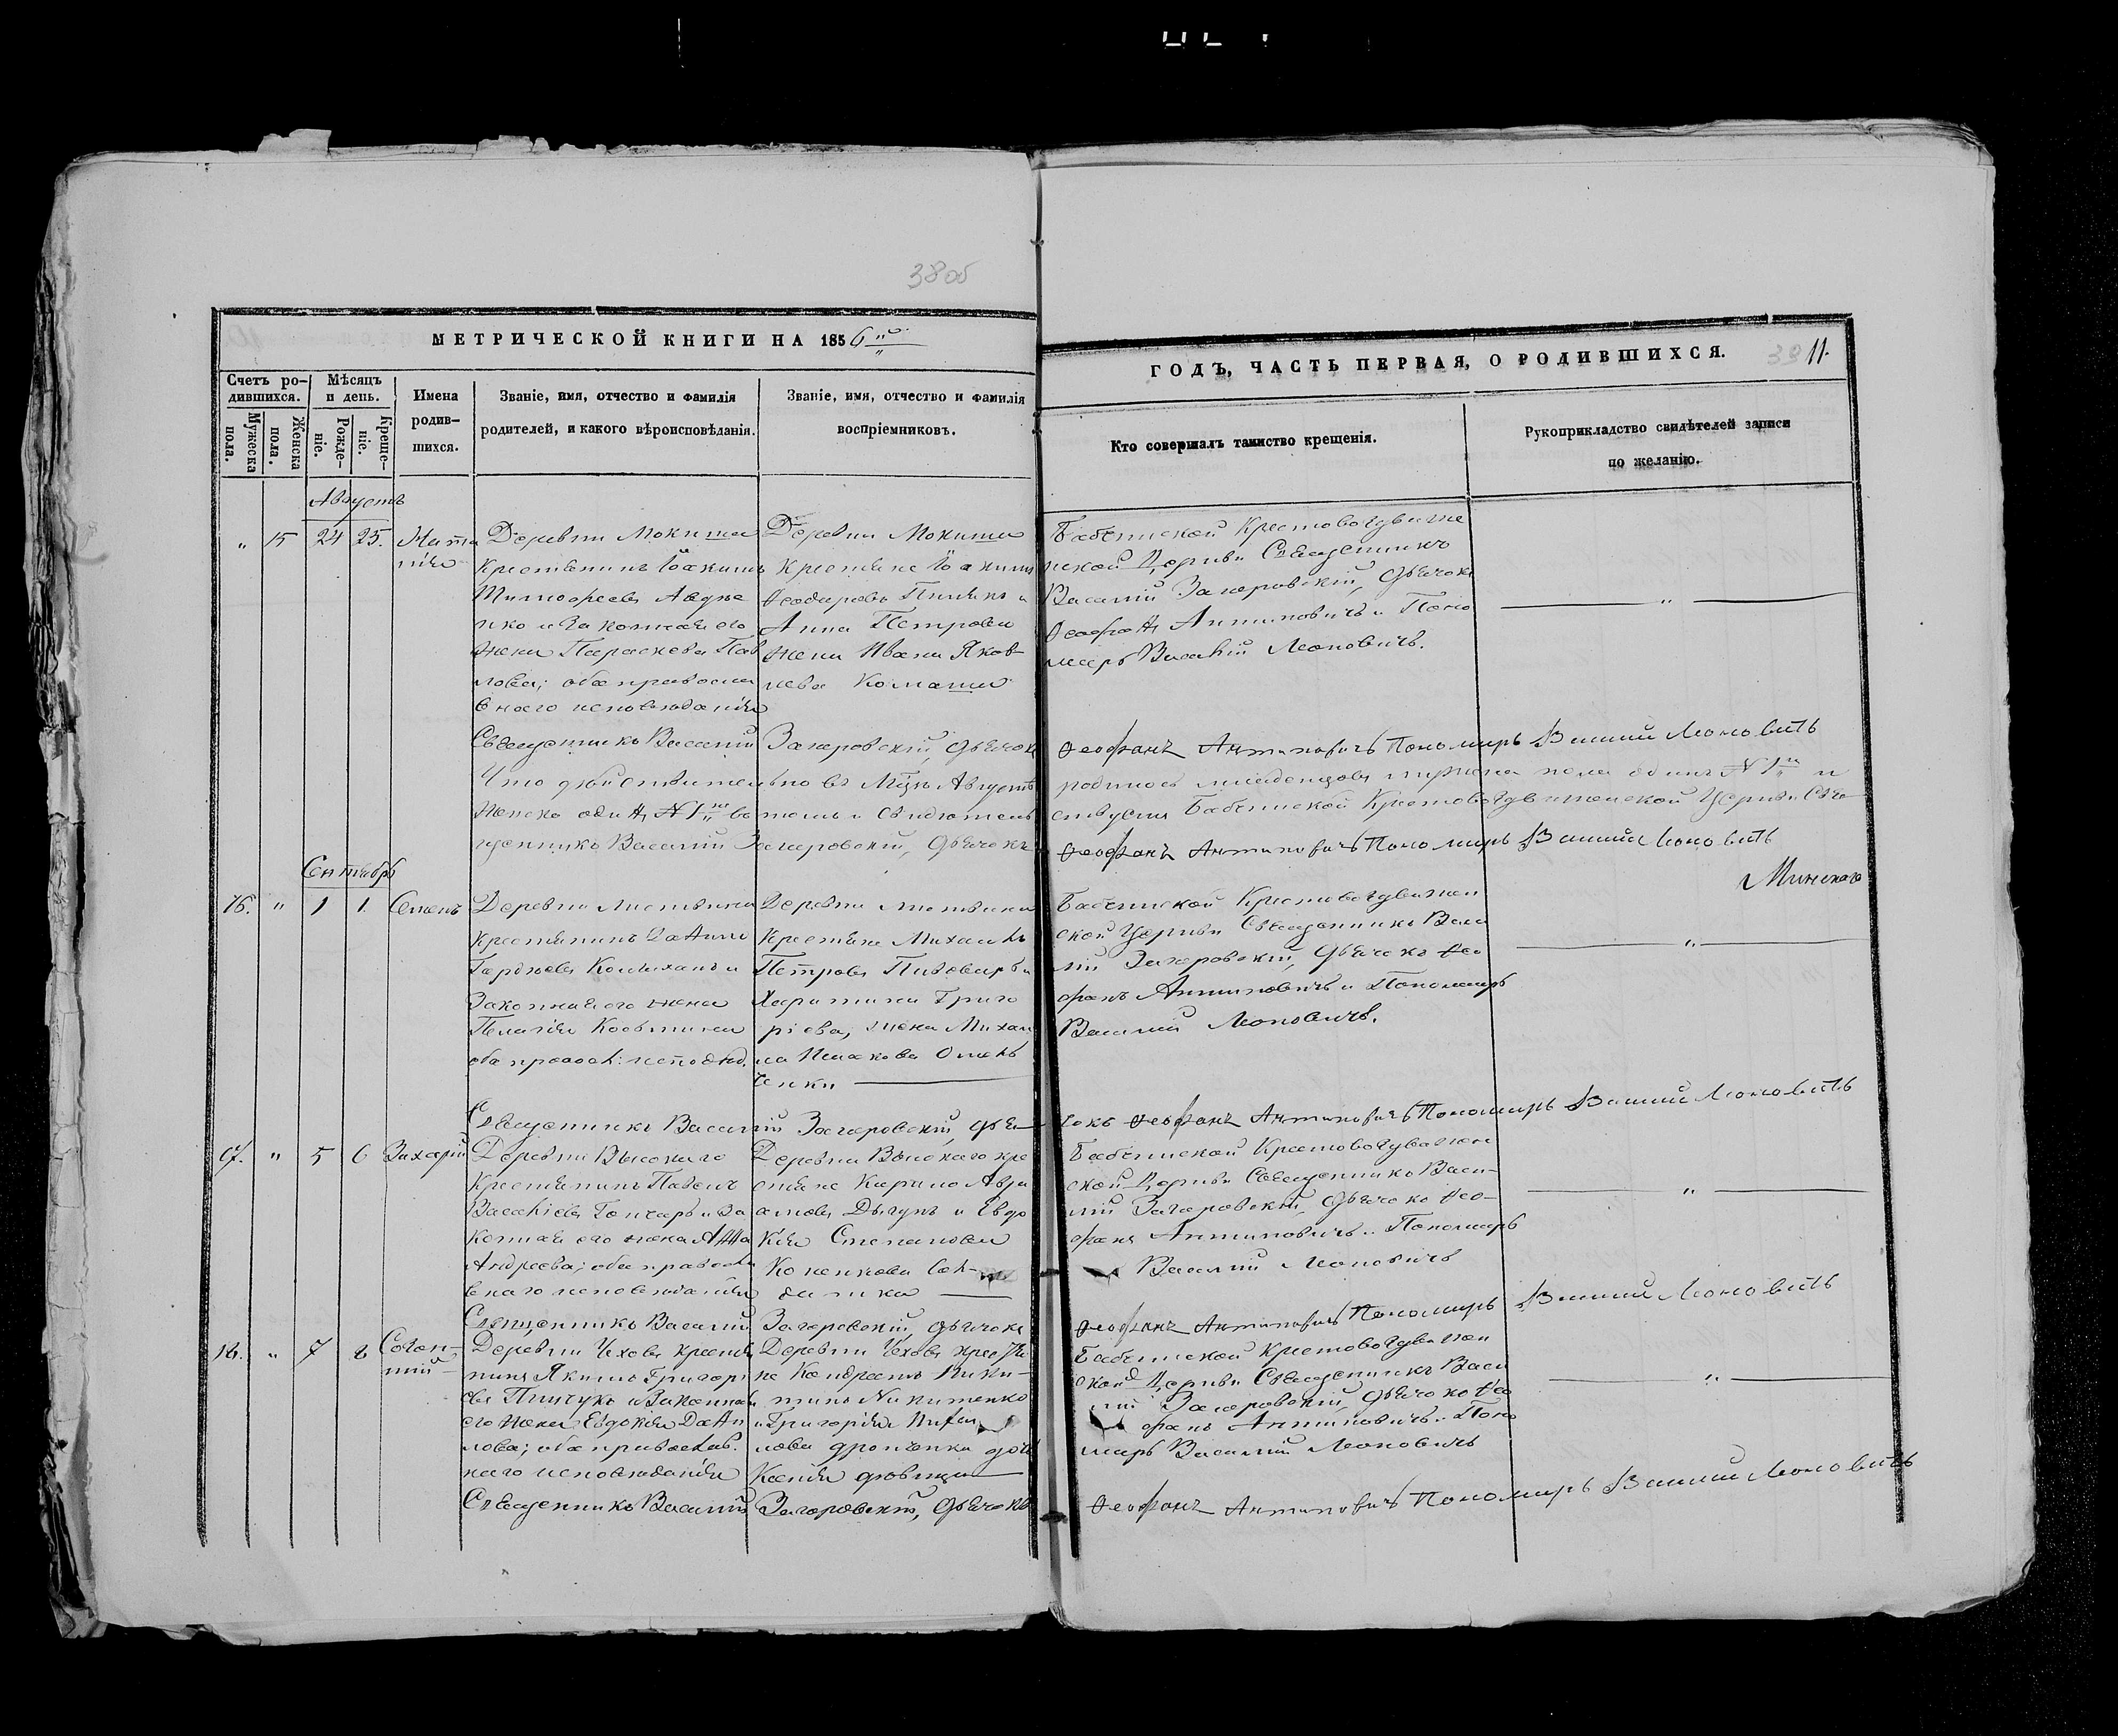 38 об
МЕТРИЧЕСКОЙ КНИГИ НА 1856й
ГОДЪ, ЧАСТЬ ПЕРВАЯ, О РОДИВШИХСЯ.
39 11.
Счетъ ро-
дившихся.
Мужеска
пола.
Женска
пола.
Мѣсяцъ
и день.
Рожде-
ніе.
Креще-
ніе.
Имена
родив-
шихся.
Званіе, имя, отчество и фамилія
родителей, и какого вѣроисповѣданія.
Званіе, имя, отчество и фамилія
воспріемниковъ.
Кто совершалъ таинство крещенія.
Рукоприкладство свидѣтелей записи
по желанію.
Августъ
" 15 24 25.
Деревни Мокиша
Крестьянинъ Іоакимъ
Тимофеевъ
и законная его
жена Параскева Пав
лова; оба православ
внаго исповѣданія
Деревни Мокиша
крестьяне Іоакимъ
Ѳеодоровъ и
Анна Петрова
жена Ивана Яков-
лева
Крестовоздвиже
нской Церкви Священникъ
Василій Загоровскій, дьячокъ
Ѳеофанъ Антиповичъ и Поно
марь Василій Леоновичъ.
Священникъ Василій Загоровскій, дьячокъ Ѳеофанъ Антиповичъ Пономарь Василій Леоновичъ
Что дѣйствительно въ Мцѣ Августѣ родилось младенцовъ мужеска пола одинъ №1й и
женска одинъ №1й въ томъ и свидѣтель ствуемъ Крестовоздвиженской Церкви Свя
щенникъ Василій Загоровскій, дьячокъ Ѳеофанъ Антиповичъ Пономарь Василій Леоновичъ
Минскаго
Сентябрь
16. " 1 1. Семенъ
Деревни Литвина
Крестьянинъ Данило
Гордѣевъ и
Законная его жена
Пелагія Козьмина
оба правосл: исповѣд.
Деревни Литвина
Крестьяне Михаилъ
Петровъ Пивоваръ и
Харитина Григо
ріева, жена Михаи
ла
ченки
Крестовоздвижен
ской Церкви Священникъ Васи
лій Загоровскій, дьячокъ Ѳео
фанъ Антиповичъ и Пономарь
Василій Леоновичъ.
Священникъ Василій Загоровскій, дья чокъ Ѳеофанъ Антиповичъ Пономарь Василій Леоновичъ
17. " 5 6 Захарій
Деревни Высокаго
Крестьянинъ Павелъ
Васильевъ Гончаръ и За
конная его жена Анна
Андреева; оба правосла
внаго исповѣданія
Деревни Высокаго кре
стьяне Кирило Авра
амовъ Дыгунъ и Евдо
кія Степанова
Крестовоздвижен
ской Церкви Священникъ Васи-
лій Загоровскій, дьячокъ Ѳео-
фанъ Антиповичъ и Пономарь
Василій Леоновичъ
Священникъ Василій Загоровскій, дьячокъ Ѳеофанъ Антиповичъ Пономарь Василій Леоновичъ
18. " 7 8 Созон-
тій
Деревни Чехова крестья
нинъ Якимъ Григорі
евъ Пинчукъ и Законная
его жена Евдокія Дани
лова; оба православ.
наго исповѣданія
Деревни Чехова крестья
не Кондратъ Ники-
тинъ Никитенко
Ксенія дѣвица
Крестовоздвижен
ской Церкви Священникъ Васи
лій Загоровскій, дьячокъ Ѳео
фанъ Антиповичъ и Поно
марь Василій Леоновичъ
Священникъ Василій Загоровскій, дьячокъ Ѳеофанъ Антиповичъ Пономарь Василій Леоновичъ